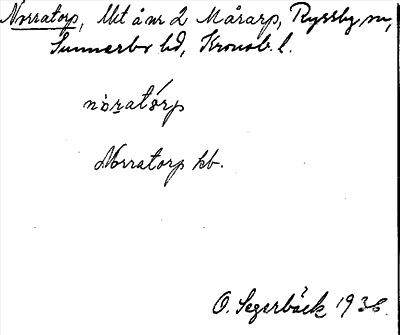 Norratorp, lht å nr 2 Mårarp, Ryssby sn,
Sunnerbo hd, Kronob. l.
nòratórp
Norratorp hb.
O. Segerbäck 1936.